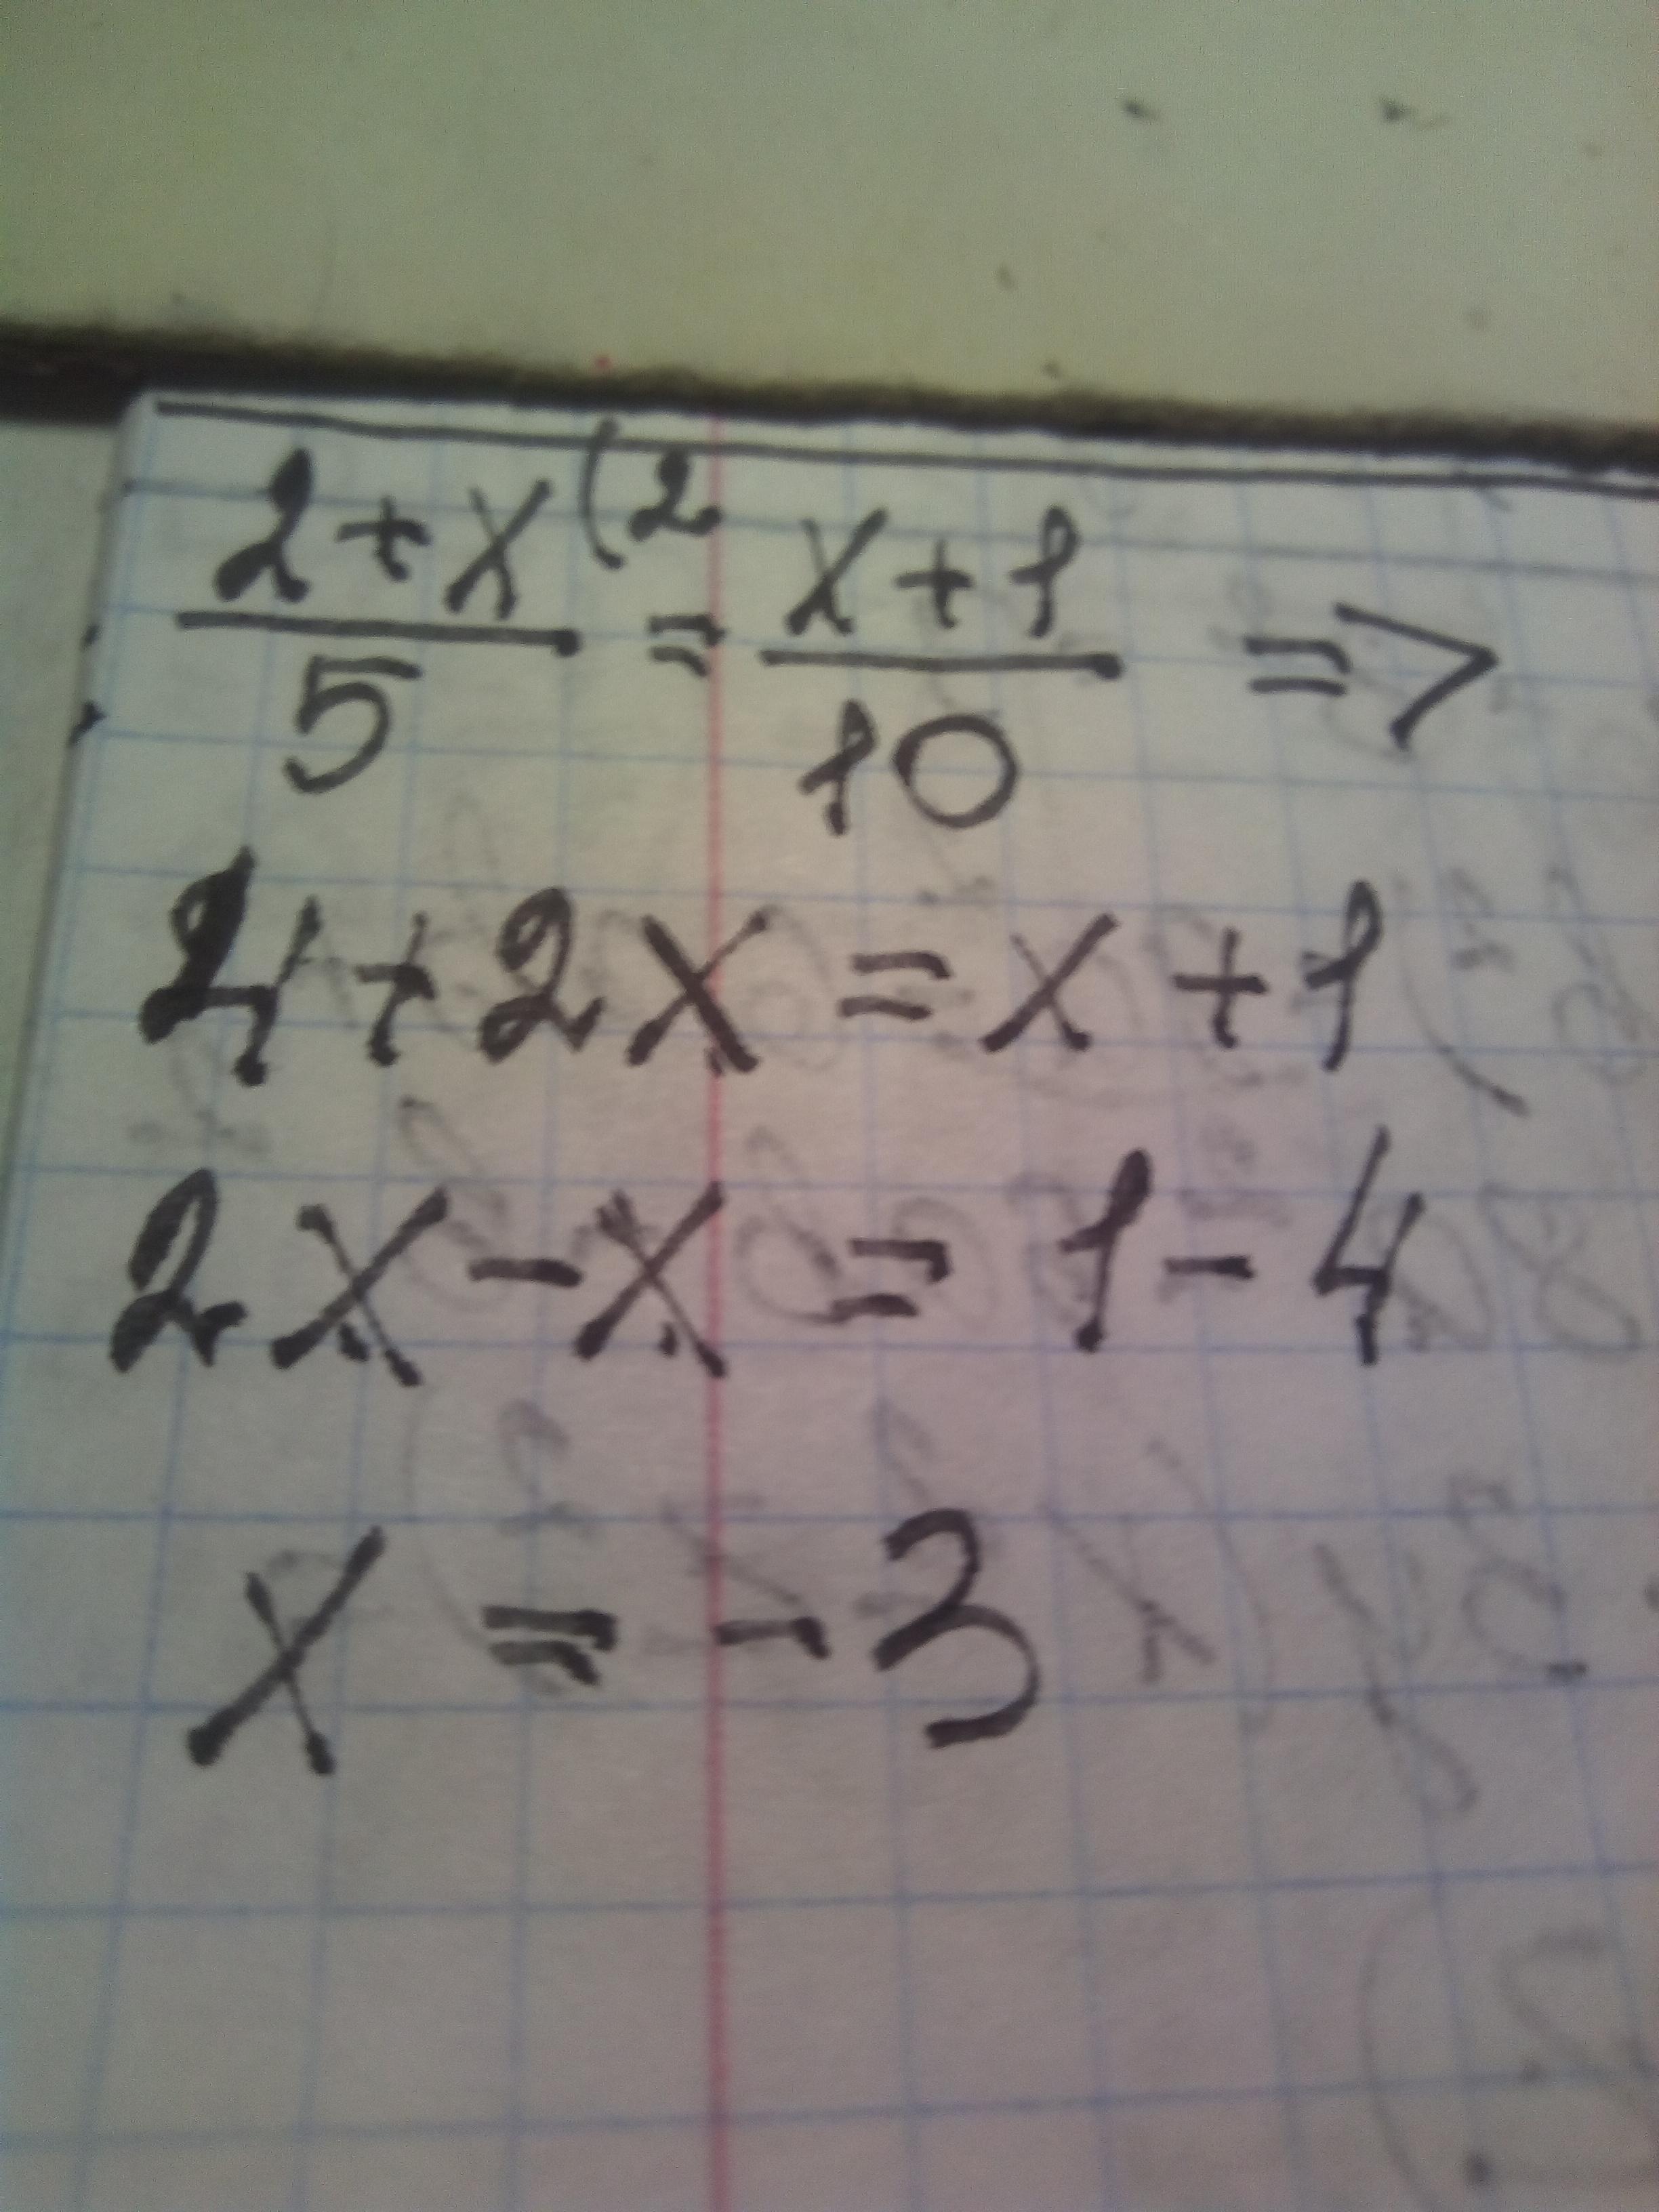 2+x(2/5 = x+1/10 =>
4+2x = x+1
2x-x = 1-4
x = -3